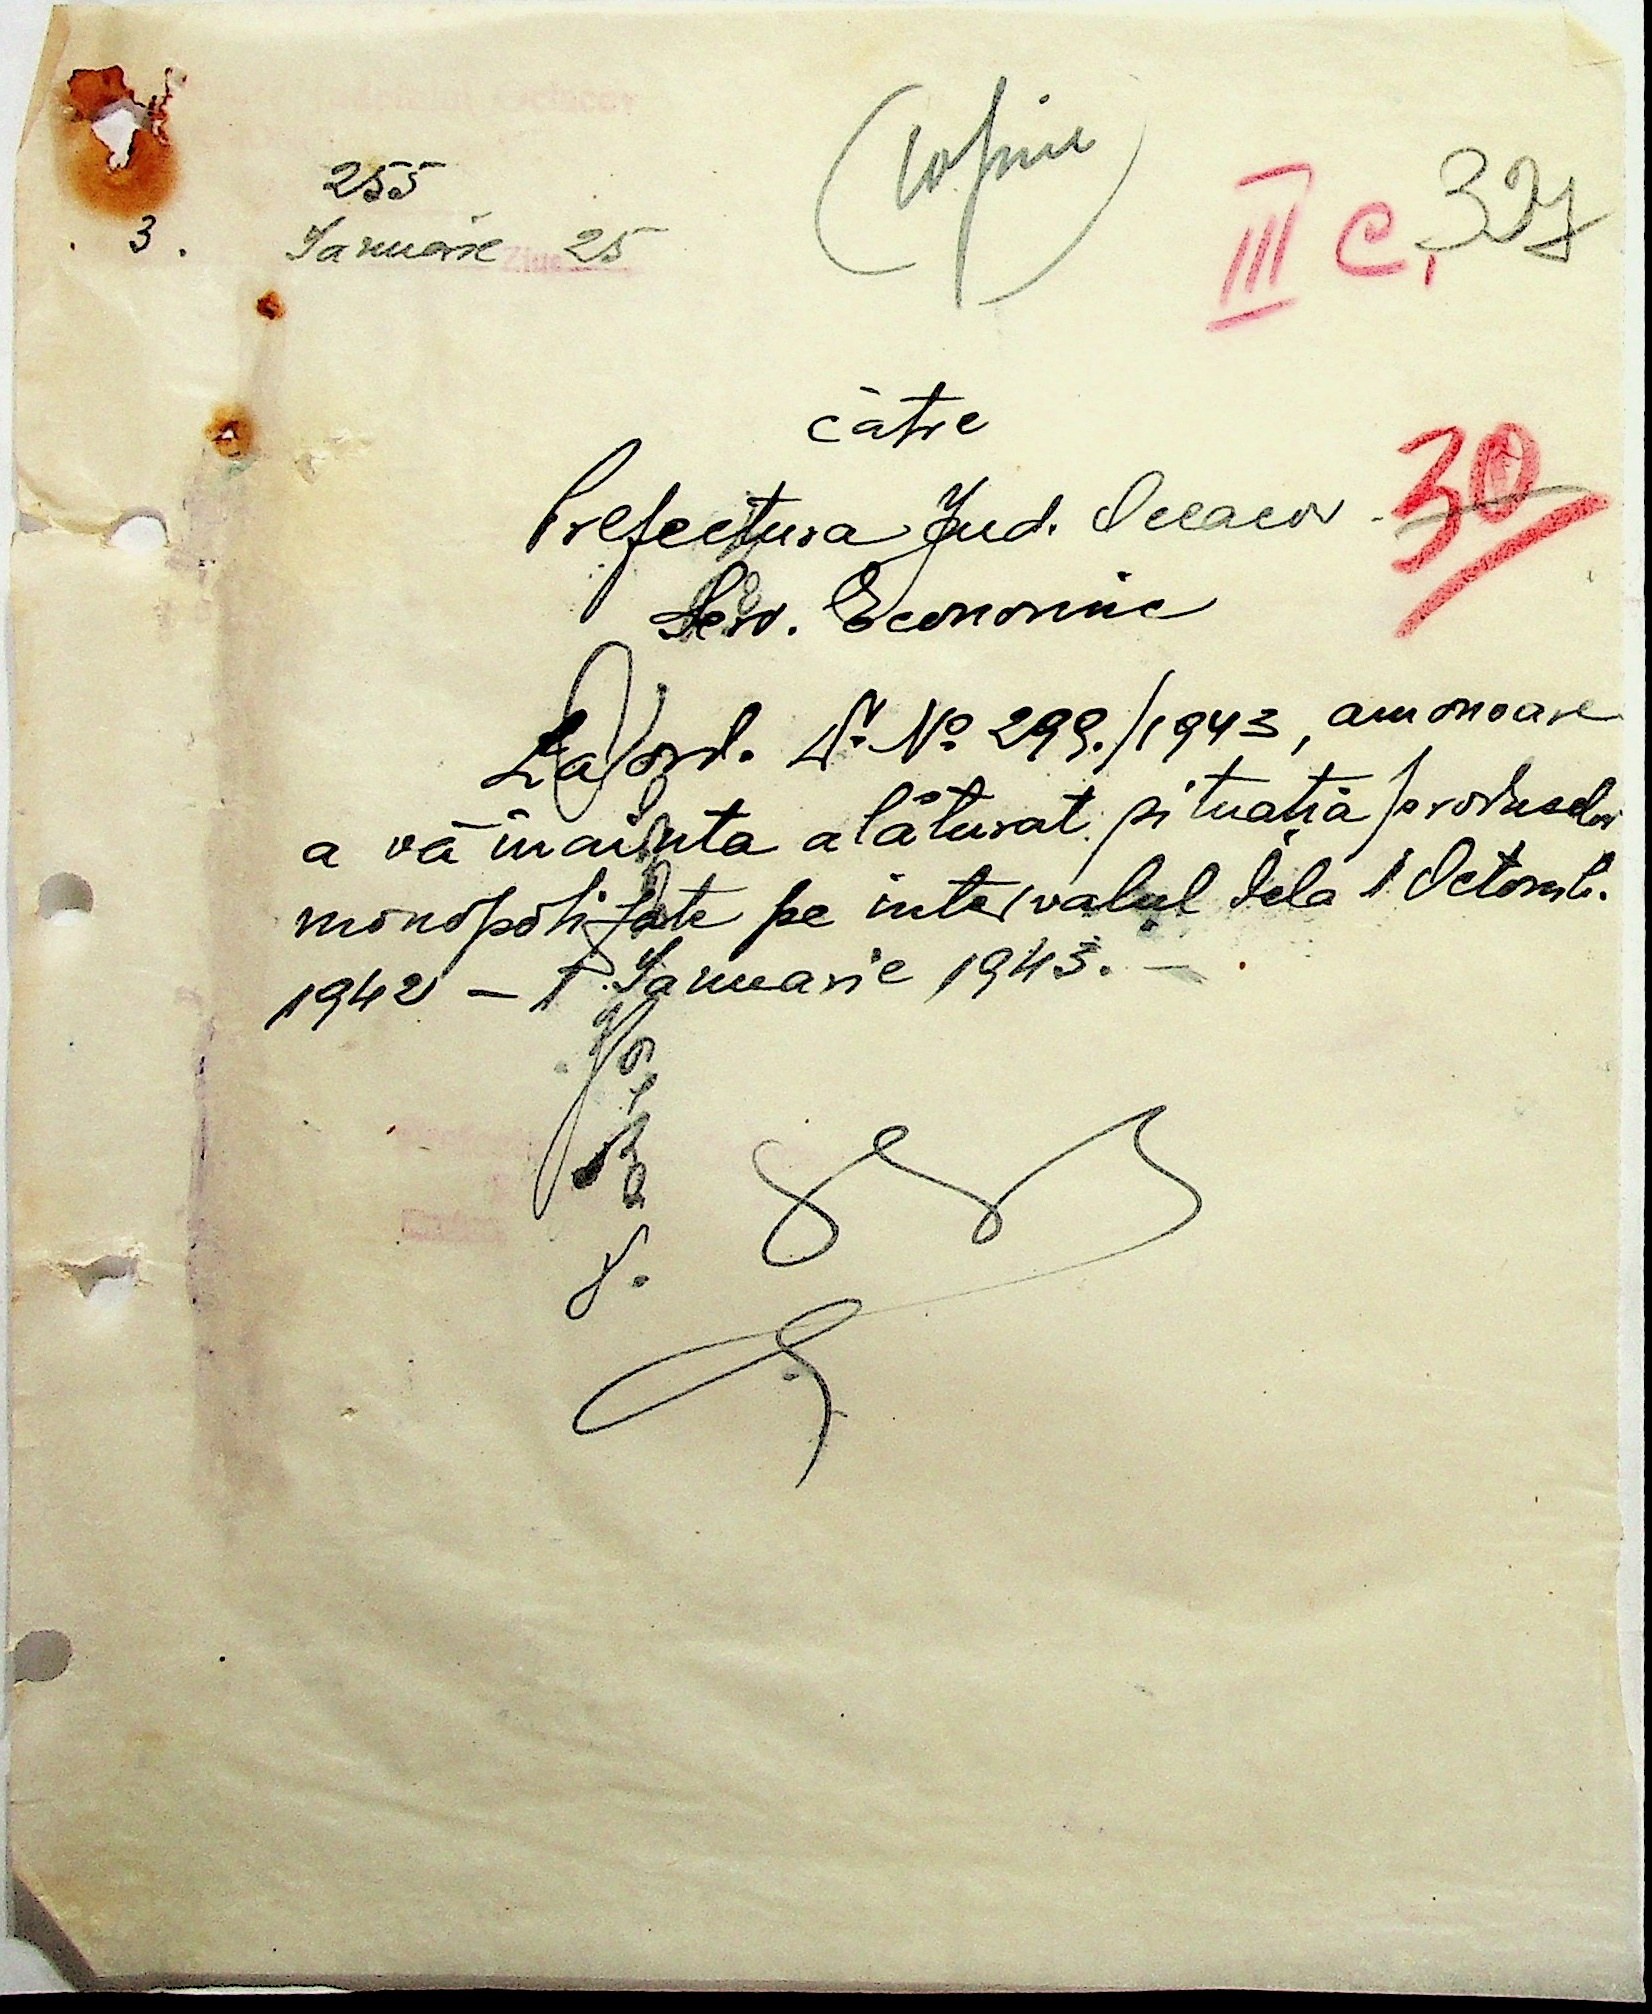 255
3. Ianuarie 25
(Copie)
III C, 327
către
Prefectura Jud.
30
Serv. Economic
La ord. Dv. No. 299./1943, am onoare
a vă înainta alăturat situația produselor
monopolizate pe intervalul dela 1 Octomb.
1942 – 1 Ianuarie 1943. –